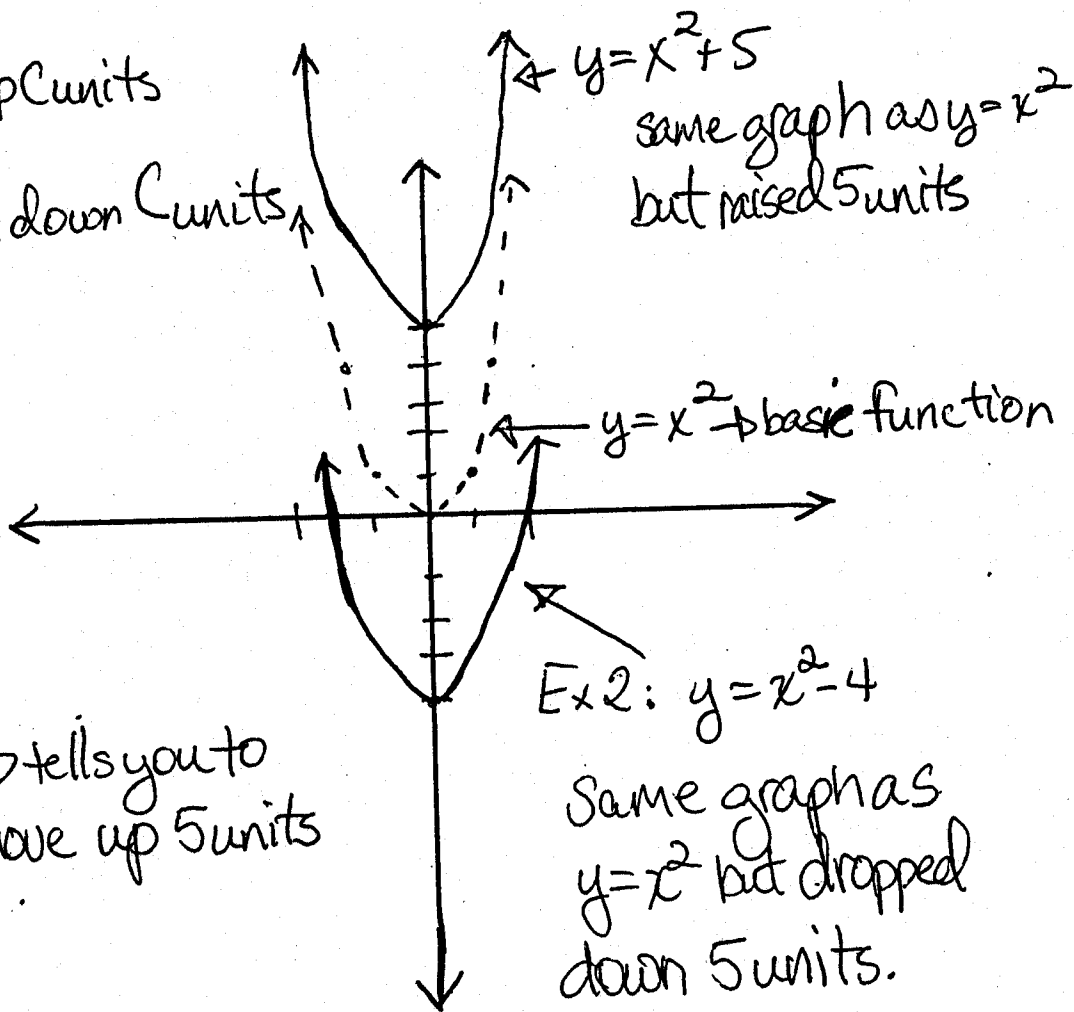 p C units
down C units
y = x² + 5
same graph as y = x²
but raised 5 units
y = x² → basic function
Ex 2: y = x² - 4
Same graph as
y = x² but dropped
down 5 units.
tells you to
ove up 5 units